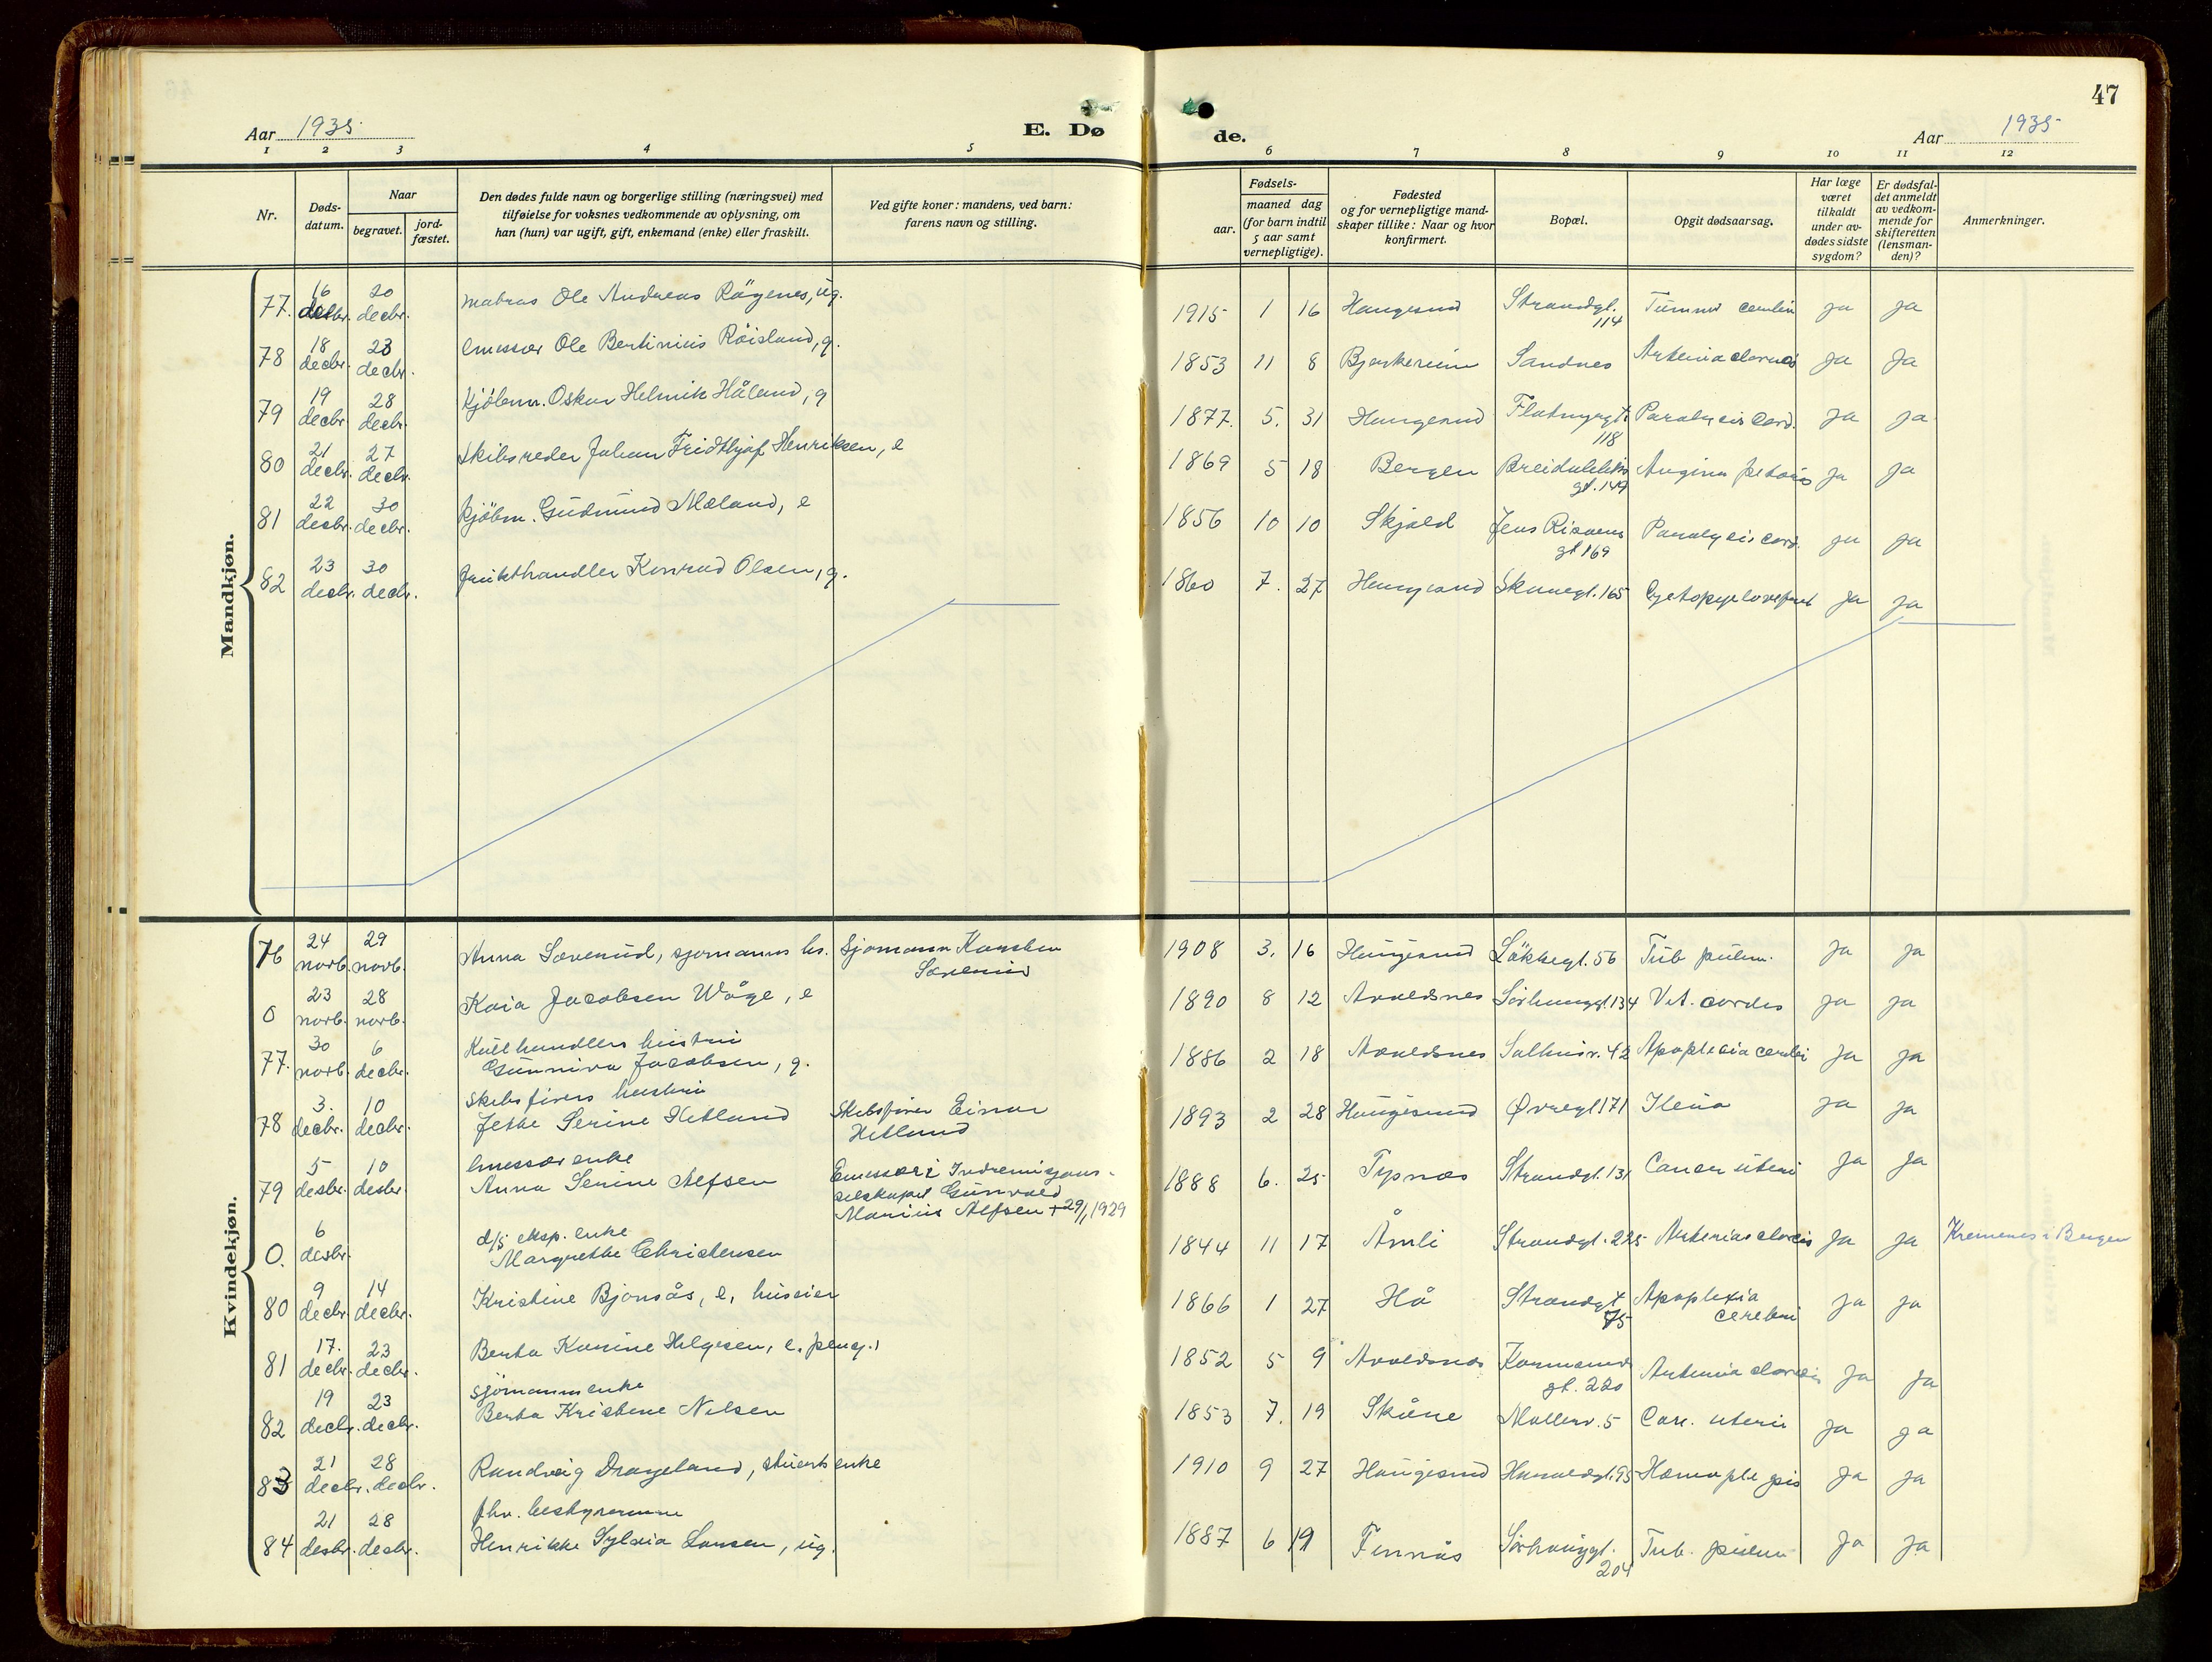 47
Aar 1935
E. Dø
de.
Aar 1935
1 2 3 4 5 6 7 8 9 10 11 12
Nr.
Døds-
datum.
Naar
begravet.
jord-
fæstet.
Den dødes fulde navn og borgerlige stilling (næringsvei) med
tilføielse for voksnes vedkommende av oplysning, om
han (hun) var ugift, gift, enkemand (enke) eller fraskilt.
Ved gifte koner: mandens, ved barn:
farens navn og stilling.
Fødsels-
aar.
maaned dag
(for barn indtil
5 aar samt
vernepligtige).
Fødested
og for vernepligtige mand-
skaper tillike: Naar og hvor
konfirmert.
Bopæl.
Opgit dødsaarsag.
Har læge
været
tilkaldt
under av-
dødes sidste
sygdom?
Er dødsfal-
det anmeldt
av vedkom-
mende for
skifteretten
(lensman-
den)?
Anmerkninger.
Mandkjøn.
77. 16 decbr. 20 decbr. matros Ole Andreas Rågenes, ug. 1915 1 16 Haugesund Strandgt. 114 Tumor cerebri ja ja
78 18 decbr. 23 decbr. emissær Ole Bertinius Röisland, g. 1853 11 8 Bjerkereim Sandnes ja ja
79 19 decbr. 28 decbr. Kjöbm. Oskar Helmik Håland, g 1877. 5. 31 Haugesund Flotmyrgt. 118 Paralysis cord. ja ja
80 21 decbr. 27 decbr. Skibsreder Johan Fridthjof Henriksen, e 1869 5 18 Bergen gt. 149 Angina ja ja
81 22 desbr. 30 decbr. Kjöbm. Gudmund Mæland, e 1856 10 10 Skjold Jens Risøens gt 169 Paralysis cord. ja ja
82 23 desbr. 30 decbr. Frukthandler Konrad Olsen, g. 1860 7. 27 Haugesund Skaregt. 165 ja ja
Kvindekjøn.
76 24 novb. 29 novb. Anna Sævereid, sjømanns hs. Sjømann Karsten Sævereid 1908 3. 16 Haugesund Lökkegt. 56 Tub pulm. ja ja
0 23 novb. 28 novb. Kaia Jacobsen Wåge, e 1890 8 12 Avaldsnes Sørhauggt. 134 Vit. cordis ja ja
77. 30 novb. 6 decbr. Kullhandlers hustru
Gunniva Jacobsen, g. 1886 2 18 Avaldsnes Salhusv. 42 Apoplexia cerebri ja ja
78 3. decbr. 10 decbr. Skibsførers hustru
Jette Serine Hetland Skibsfører Einar Hetland 1893 2 28 Haugesund Øvregt 171 Ileus ja ja
79 5 desbr. 10 desbr. Emissær enke
Anna Serine Alfsen Emissær i Indremisjons-
selskapet Gunvald
Marius Alfsen + 29/1 1929 1888 6. 25 Tysnæs Strandgt. 131 Cancer uteri ja ja
0. 6 desbr. d/s eksp. enke
Margrethe Christensen 1844 11 17 Åmli Strandgt. 225 ja ja Kremeres i Bergen
80 9 decbr. 14 decbr. Kristine Bjorsås, e, huseier 1866 1 27 Hå Strandgt 75 Apoplexia cerebri ja ja
81 17. decbr. 23 decbr. Berta Karine Helgesen, e. 1852 5 9 Avaldsnes Karmsunds gt. 220 ja ja
82 19 decbr. 23 decbr. Sjömanns enke
Berta Kristine Nilsen 1853 7. 19 Skåne Mollerv. 5 Carc. uteri ja ja
83 21 decbr. 28 decbr. Randveig Drageland, stuerts enke 1910 9 27 Haugesund Haraldsgt. 95 ja ja
84 21 desbr. 28 desbr. fhv. bestyrerinne
Henrikke Sylvia Larsen, ug. 1887 6 19 Finnås Sørhauggt. 204 Tub. pulm ja ja